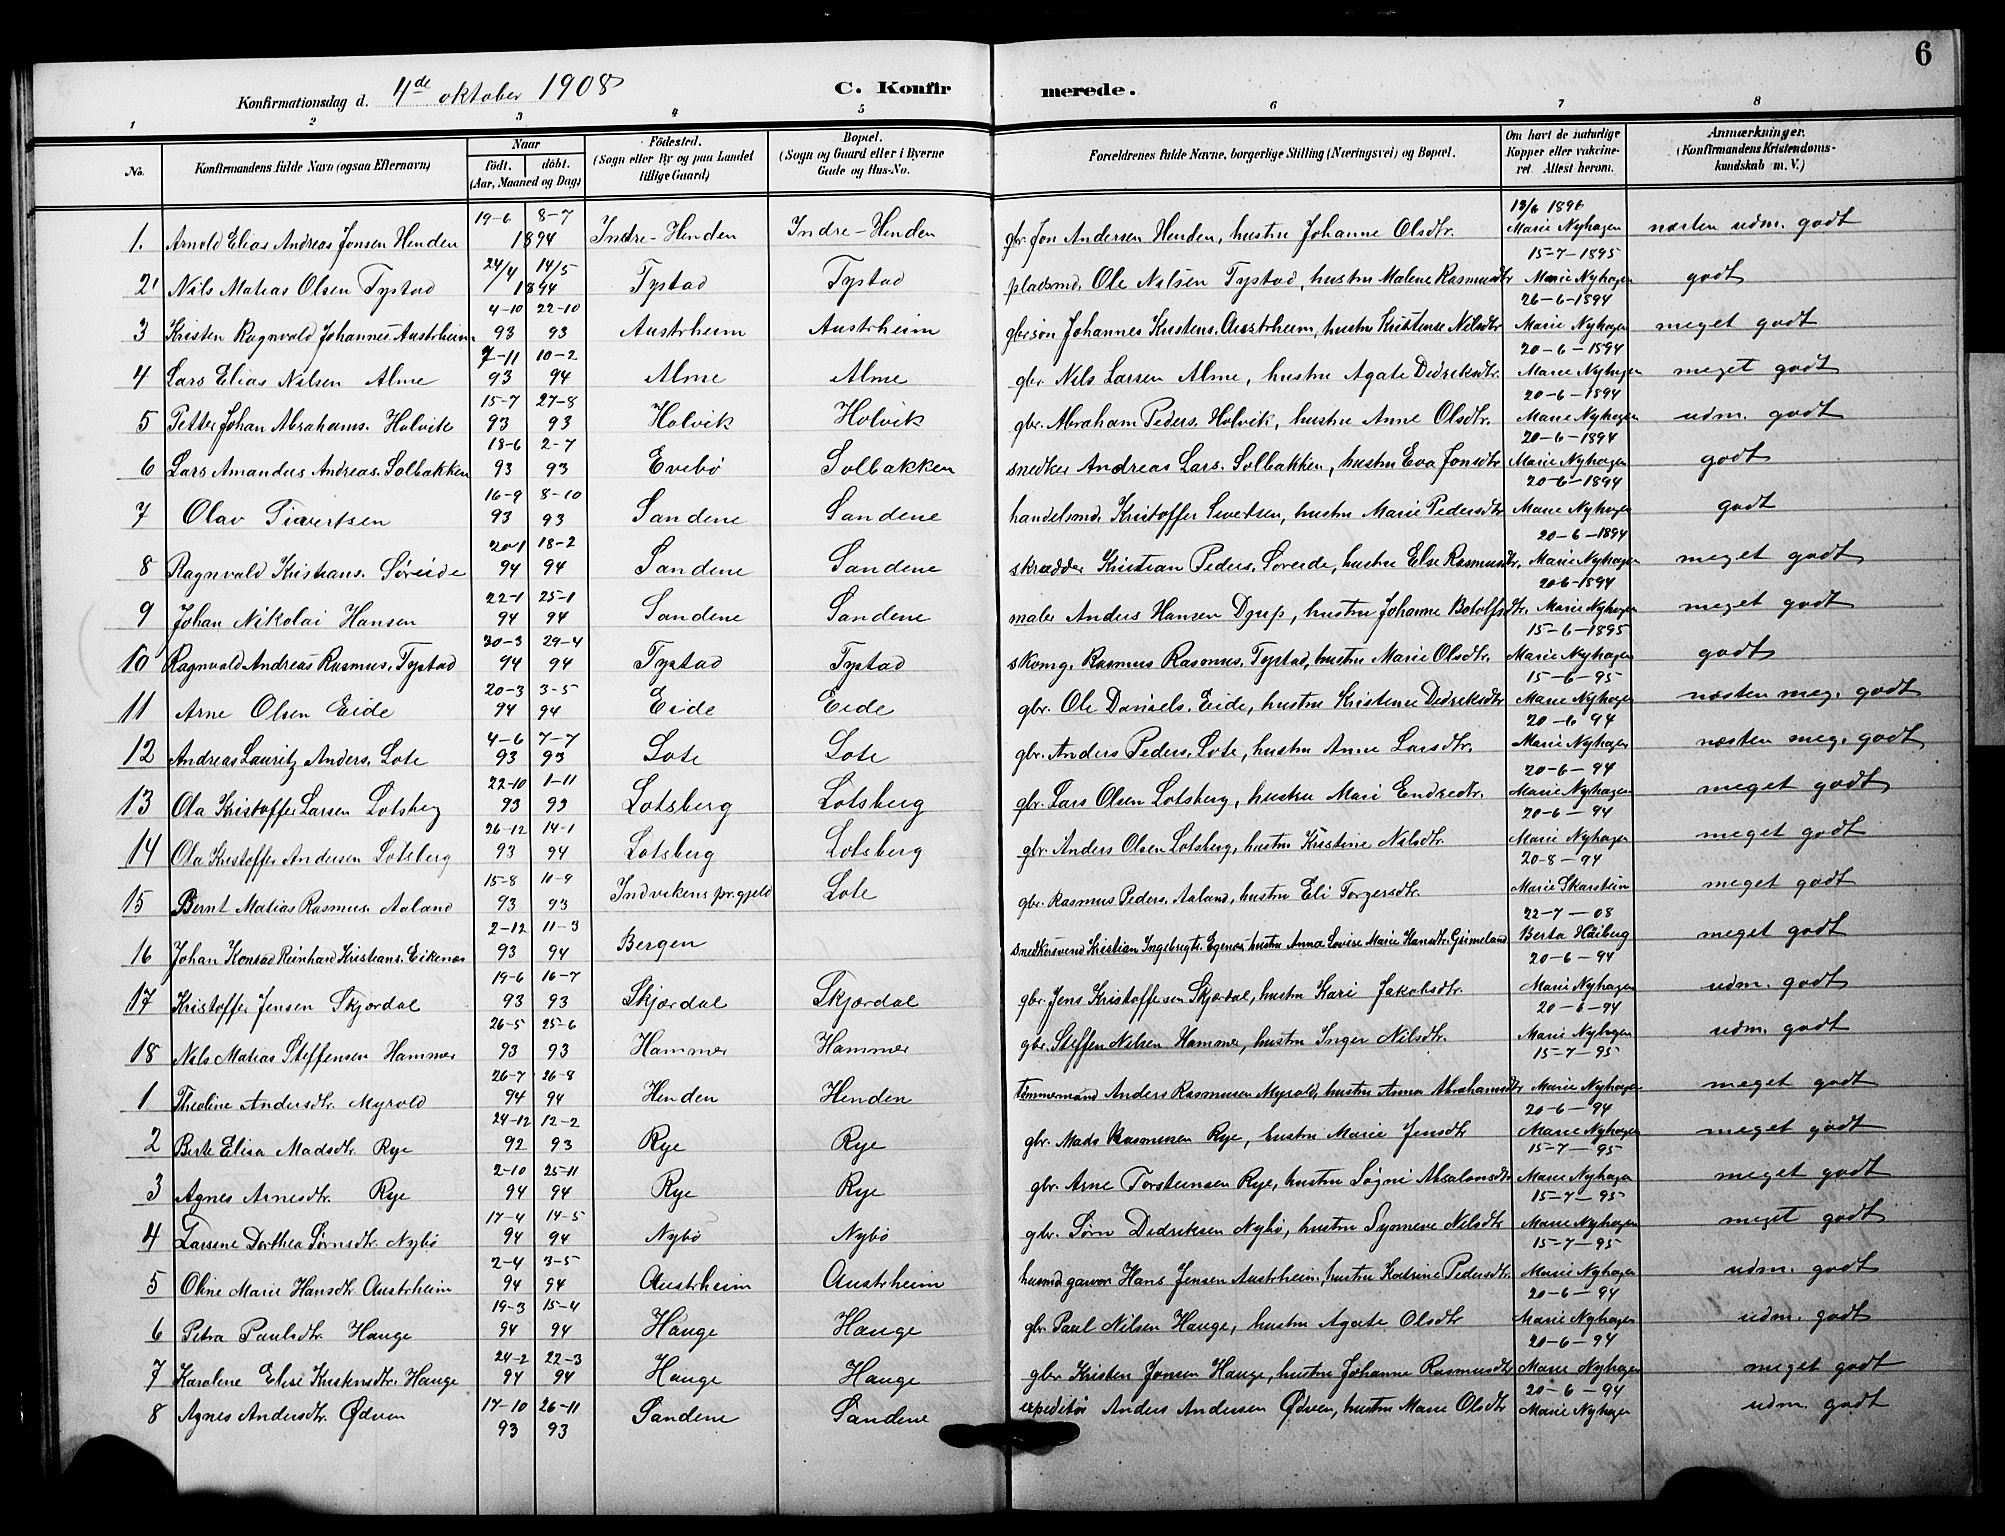 6
Konfirmationsdag d. 4de oktober 1908 C. Konfirmerede.
1 2 3 4 5 6 7 8
No. Konfirmandens fulde Navn (ogsaa Efternavn) Naar født. døbt. (Aar, Maaned og Dag) Fødested. (Sogn eller By og paa Landet tillige Gaard) Bopæl. (Sogn og Gaard eller i Byerne Gade og Hus-No. Forældrenes fulde Navne, borgerlige Stilling (Næringsvei) og Bopæl. Om havt de naturlige Kopper eller vakcineret Attest herom. Anmærkninger. (Konfirmandens Kristendomskundskab m. V.)
1. Arnold Elias Andreas Jonsen Henden 19-6 8-7 1894 Indre-Henden Indre-Henden gbr. Jon Andersen Henden, hustru Johanne Olsdtr. 13/6 1896 Marie Nyhagen næsten udm. godt
2 Nils Matias Olsen Tystad 24/4 14/5 1894 Tystad Tystad pladsmd. Ole Nilsen Tystad, hustru Malene Rasmusdtr 15-7-1895 Marie Nyhagen godt
3 Kristen Ragnvald Johannes. Austrheim 4-10 22-10 93 93 Austrheim Austrheim gbr.søn Johannes Kristens. Austrheim, hustru Kristense Nilsdtr 26-6-1894 Marie Nyhagen meget godt
4 Lars Elias Nilsen Alme 7-11 10-2 93 94 Alme Alme gbr. Nils Larsen Alme, hustru Agate Didriksdtr. 20-6-1894 Marie Nyhagen meget godt
5 Petter Johan Abrahams. Holvik 15-7 27-8 93 93 Holvik Holvik gbr. Abraham Peders. Holvik, hustru Anne Olsdtr. 20-6-1894 Marie Nyhagen udm. godt
6 Lars Amandus Andreas. Solbakken 18-6 2-7 93 93 Evebø Solbakken snedker Andreas Lars. Solbakken, hustru Eva Jonsdtr 20-6-1894 Marie Nyhagen godt
7 Olav Sivertsen 16-9 8-10 93 93 Sandene Sandene handelsmd. Kristoffer Sivertsen, hustru Marie Pedersdtr 20-6-1894 Marie Nyhagen godt
8 Ragnvald Kristians. Søreide 20-1 18-2 94 94 Sandene Sandene skrædder Kristian Peders. Søreide, hustru Else Rasmusdtr. 20-6-1894 Marie Nyhagen meget godt
9 Johan Nikolai Hansen 22-1 25-1 94 94 Sandene Sandene maler Anders Hansen Djup, hustru Johanne Botolfsdtr. 20-6-1894 Marie Nyhagen meget godt
10 Ragnvald Andreas Rasmus. Tystad 30-3 29-4 94 94 Tystad Tystad skomg. Rasmus Rasmus. Tystad, hustru Marie Olsdtr. 15-6-1895 Marie Nyhagen godt
11 Arne Olsen Eide 20-3 3-5 94 94 Eide Eide gbr. Ole Daniels. Eide, hustru Kristense Didriksdtr 15-6-95 Marie Nyhagen næsten meg. godt
12 Andreas Lauritz Anders. Lote 4-6 7-7 93 93 Lote Lote gbr. Anders Peders. Lote, hustru Anne Larsdtr. 20-6 94 Marie Nyhagen næsten meg. godt
13 Ola Kristoffer Larsen Lotsberg 22-10 1-11 93 93 Lotsberg Lotsberg gbr. Lars Olsen Lotsberg, hustru Mari Endredtr. 20-6-94 Marie Nyhagen meget godt
14 Ola Kristoffer Andersen Lotsberg 26-12 14-1 93 94 Lotsberg Lotsberg gbr. Anders Olsen Lotsberg, hustru Kristine Nilsdtr. 20-6-94 Marie Nyhagen meget godt
15 Bernt Matias Rasmus. Aaland 15-8 10-9 93 93 Indvikens pr.gjeld Lote gbr. Rasmus Peders. Aaland, hustru Eli Torgersdtr. 20-8-94 Marie Skarstein meget godt
16 Johan Konrad Reinhard Kristians. Eikenæs 2-12 11-3 93 94 Bergen snedkersvend Kristian Ingebrigts. Egenæs, hustru Anna Lovise Marie Hansdtr. Grimeland 22-7-08 Berta Høiberg meget godt
17 Kristoffer Jensen Skjørdal 19-6 16-7 93 93 Skjørdal Skjørdal gbr. Jens Kristoffersen Skjørdal, hustru Kari Jakobsdtr. 20-6-94 Marie Nyhagen udm. godt
18 Nils Matias Steffensen Hammer 26-5 25-6 93 93 Hammer Hammer gbr. Steffen Nilsen Hammer, hustru Inger Nilsdtr. 20-6-94 Marie Nyhagen udm. godt
1 Theoline Andersdtr. Myrold 26-7 26-8 94 94 Henden Henden tømmermand Anders Rasmussen Myrold, hustru Anna Abrahamsdtr 15-7-95 Marie Nyhagen meget godt
2 Berte Elisa Madsdtr. Rye 24-12 12-2 92 93 Rye Rye gbr. Mads Rasmussen Rye, hustru Marie Jensdtr 20-6-94 Marie Nyhagen meget godt
3 Agnes Arnesdtr. Rye 2-10 25-11 94 94 Rye Rye gbr. Arne Torsteinsen Rye, hustru Søgni Absalonsdtr 15-7-95 Marie Nyhagen meget godt
4 Larsine Dorthea Sørnsdtr. Nybø 17-4 14-5 94 94 Nybø Nybø gbr. Sørn Didriksen Nybø, hustru Synneve Nilsdtr 15-7-95 Marie Nyhagen meget godt
5 Oline Marie Hansdtr Austrheim 2-4 3-5 94 94 Austrheim Austrheim husmd. garver Hans Jensen Austrheim, hustru Katrine Pedersdtr. 15-7-95 Marie Nyhagen udm. godt
6 Petra Paulsdtr. Hauge 19-3 15-4 94 94 Hauge Hauge gbr. Paul Nilsen Hauge, hustru Agate Olsdtr 20-6-94 Marie Nyhagen udm. godt
7 Karoline Elise Kristensdtr. Hauge 24-2 22-3 94 94 Hauge Hauge gbr. Kristen Jonsen Hauge, hustru Johanne Rasmusdtr 20-6-94 Marie Nyhagen meget godt
8 Agnes Andersdtr. Ødven 17-10 26-11 93 93 Sandene Sandene expeditør Anders Andersen Ødven, hustru Marie Olsdtr 20-6-94 Marie Nyhagen udm. godt